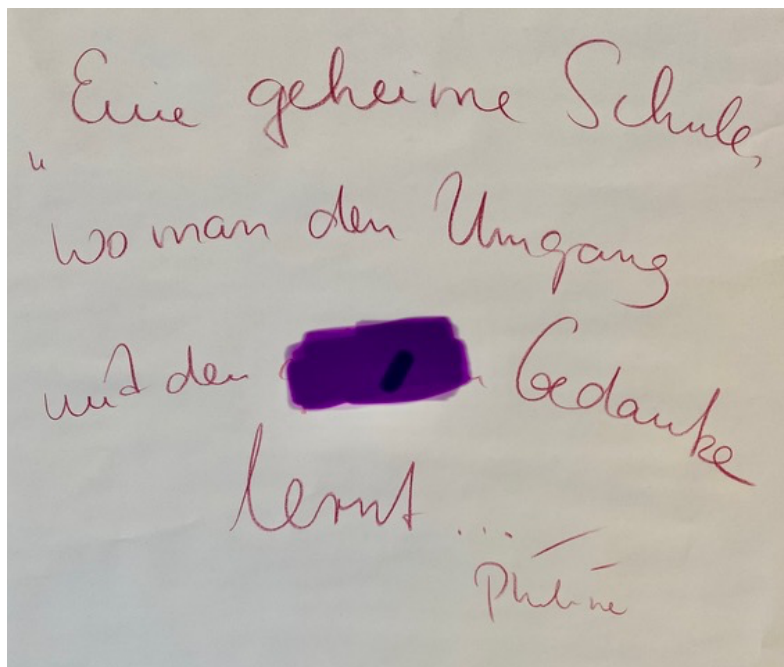 „Eine geheime Schule,
wo man den Umgang
mit den Gedanke
lernt...
Philine